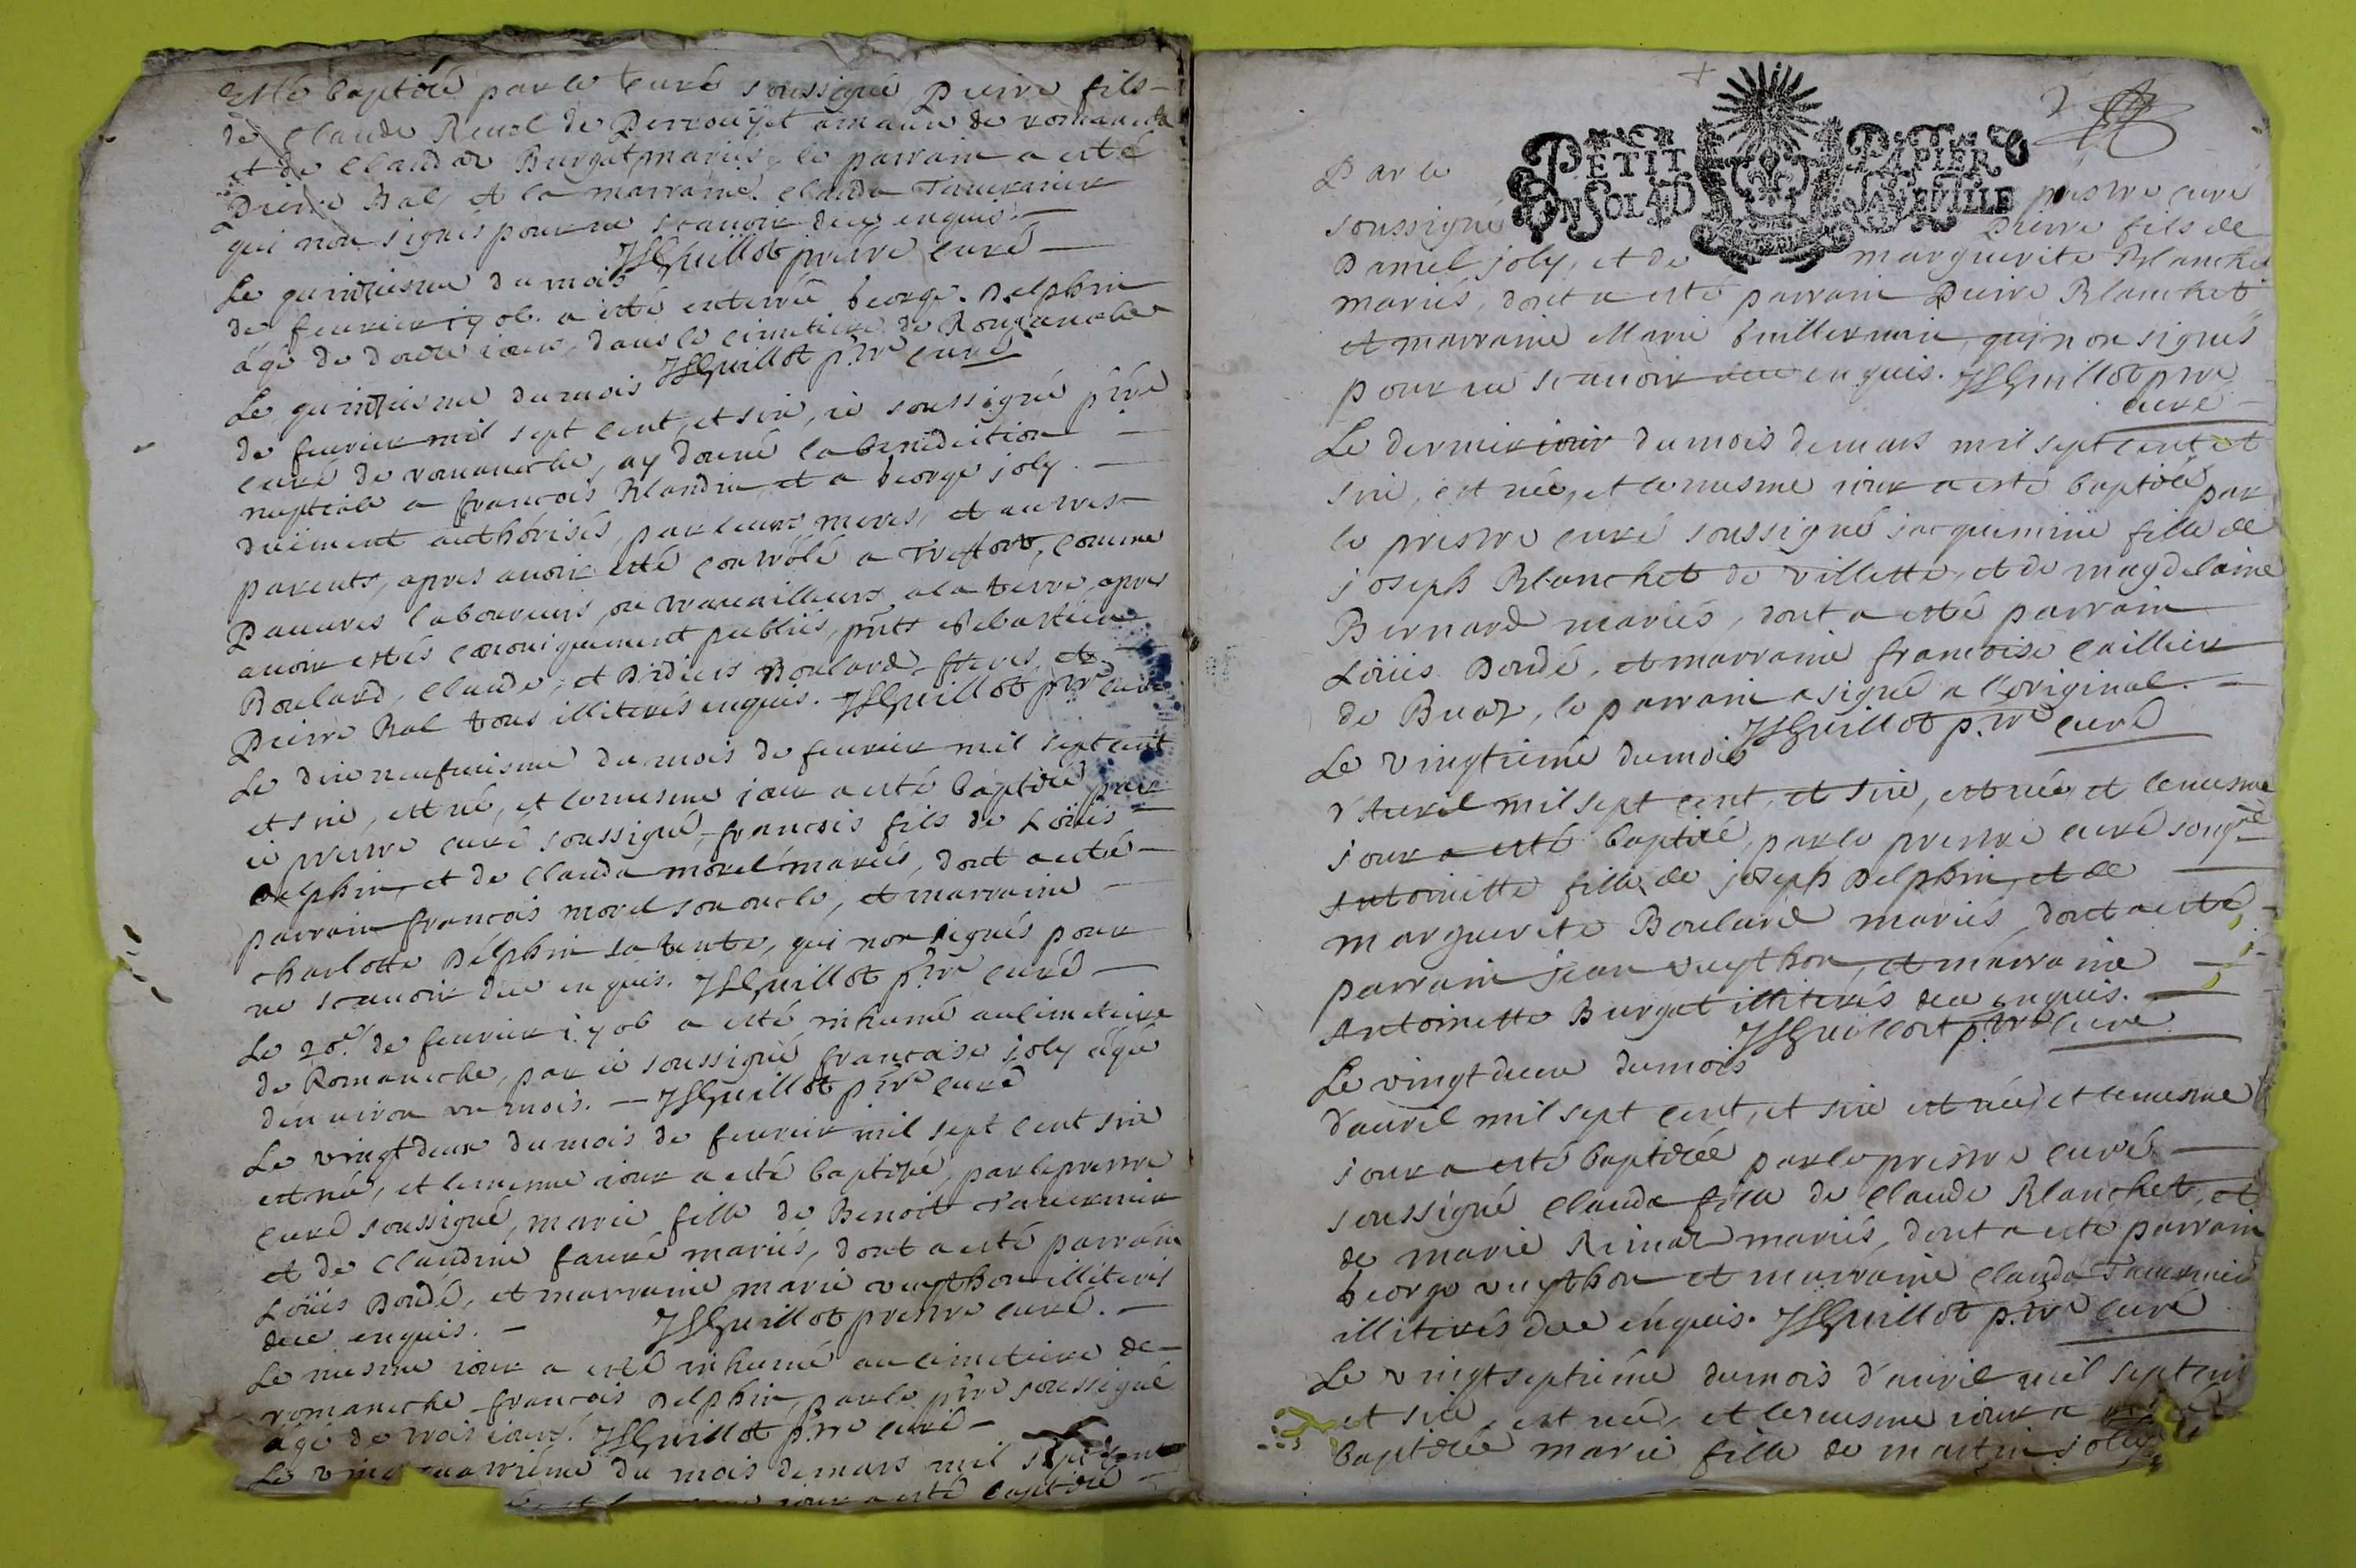 Esté baptisé par le curé soussigné, Pierre fils
de Claude Revol de Perrouÿ et amanie de romaneche
et de Claudaz Burgat mariés, le parrain a esté
Pierre Bal, et la marraine Clauda Tavernier
qui non signés pour ne scauoir deuz enquis.
JLGuillot prestre curé
Le quinziesme du mois
de feurier 1706. a esté enterrée George Delphin
âgé de douze iours, dans le cimetiere de Romaneche
JLGuillot p.tre curé
Le quinziesme du mois
de feurier mil sept cent, et six, ie soussigné p.tre
curé de romaneche, ay donné la benediction
nuptiale a françois Blandin et a George joly.
duëment authorisés, par leurs meres, et autres
parents, apres auoir esté controlé a Treffort, comme
Pauures laboureurs, ou trauailleurs a la terre, apres
auoir estés canoniquement publiés, pñts Sebastien
Boulard, Claude, et Didiers Boulard freres, et
Pierre Bal tous illiterés enquis. JLGuillot p.tre curé
Le dixneufuiesme du mois de feurier mil sept cent
et six, est né, et le mesme iour a esté baptisé par
ie prestre curé soussigné, françois fils de Loüis
Delphin, et de Clauda morel mariés, dont a esté
parrain françois morel son oncle, et marraine
charlotte Delphin sa tante, qui non signés pour
ne scauoir due enquis. JLGuillot p.tre curé
Le 20.e de feurier 1706 a esté inhumé au cimetiere
de Romaneche, par ie soussigné françoise joly âgée
d'enuiron un mois. JLGuillot p.tre curé
Le vingt deux du mois de feurier mil sept cent six
est née, et le mesme iour a esté baptisée, par le prestre
curé soussigné, marie fille de Benoit Tavernier
et de Claudine fauré mariés, dont a esté parrain
Loüis Dondé, et marraine marie vuython illiterés
due enquis. JLGuillot prestre curé.
Le mesme iour a esté inhumé au cimetiere de
romaneche françois Delphin, par le p.tre soussigné
âgé de trois iours. JLGuillot p.tre curé
Le vingt quatriéme du mois de mars mil sept cent
iour a esté baptisé
Par le prestre curé
PETIT PAPIER
soussigné Pierre fils de
Daniel joly, et de marguerite Blanchet
mariés, dont a esté parrain Pierre Blanchet
et marraine Marie Guillermin, qui non signés
pour ne scauoir due enquis. JLGuillot p.tre
curé
Le dernier iour du mois de mars mil sept cent et
six, est née, et le mesme iour a esté baptisée par
le prestre curé soussigné jacquemine fille de
joseph Blanchet de villette, et de magdelaine
Bernard mariés, dont a esté parrain
Loüis Dondé, et marraine françoise Caillier
de Buaz, le parrain a signé a l'original.
JLGuillot p.tre curé
Le vingtiéme du mois
d'Auril mil sept cent, et six, est née et le mesme
jour a esté baptisé, par le prestre curé sousg.né
Antoinette fille de joseph Delphin, et de
marguerite Boulard mariés, dont a esté
parrain jean vuython, et marraine
Antoinette Burgat illiterés due enquis.
JLGuillot p.tre curé
Le vingt deux du mois
d'auril mil sept cent, et six est née, et le mesme
jour a esté baptisée par le prestre curé
soussigné Clauda fille de Claude Blanchet, et
de marie Rimaz mariés, dont a esté parrain
George vuython et marraine Clauda Tavernier
illiterés due enquis. JLGuillot p.tre curé
Le vingt septiéme du mois d'auril mil sept cent
et six, est née, et le mesme iour a esté
baptisée marie fille de martin joly